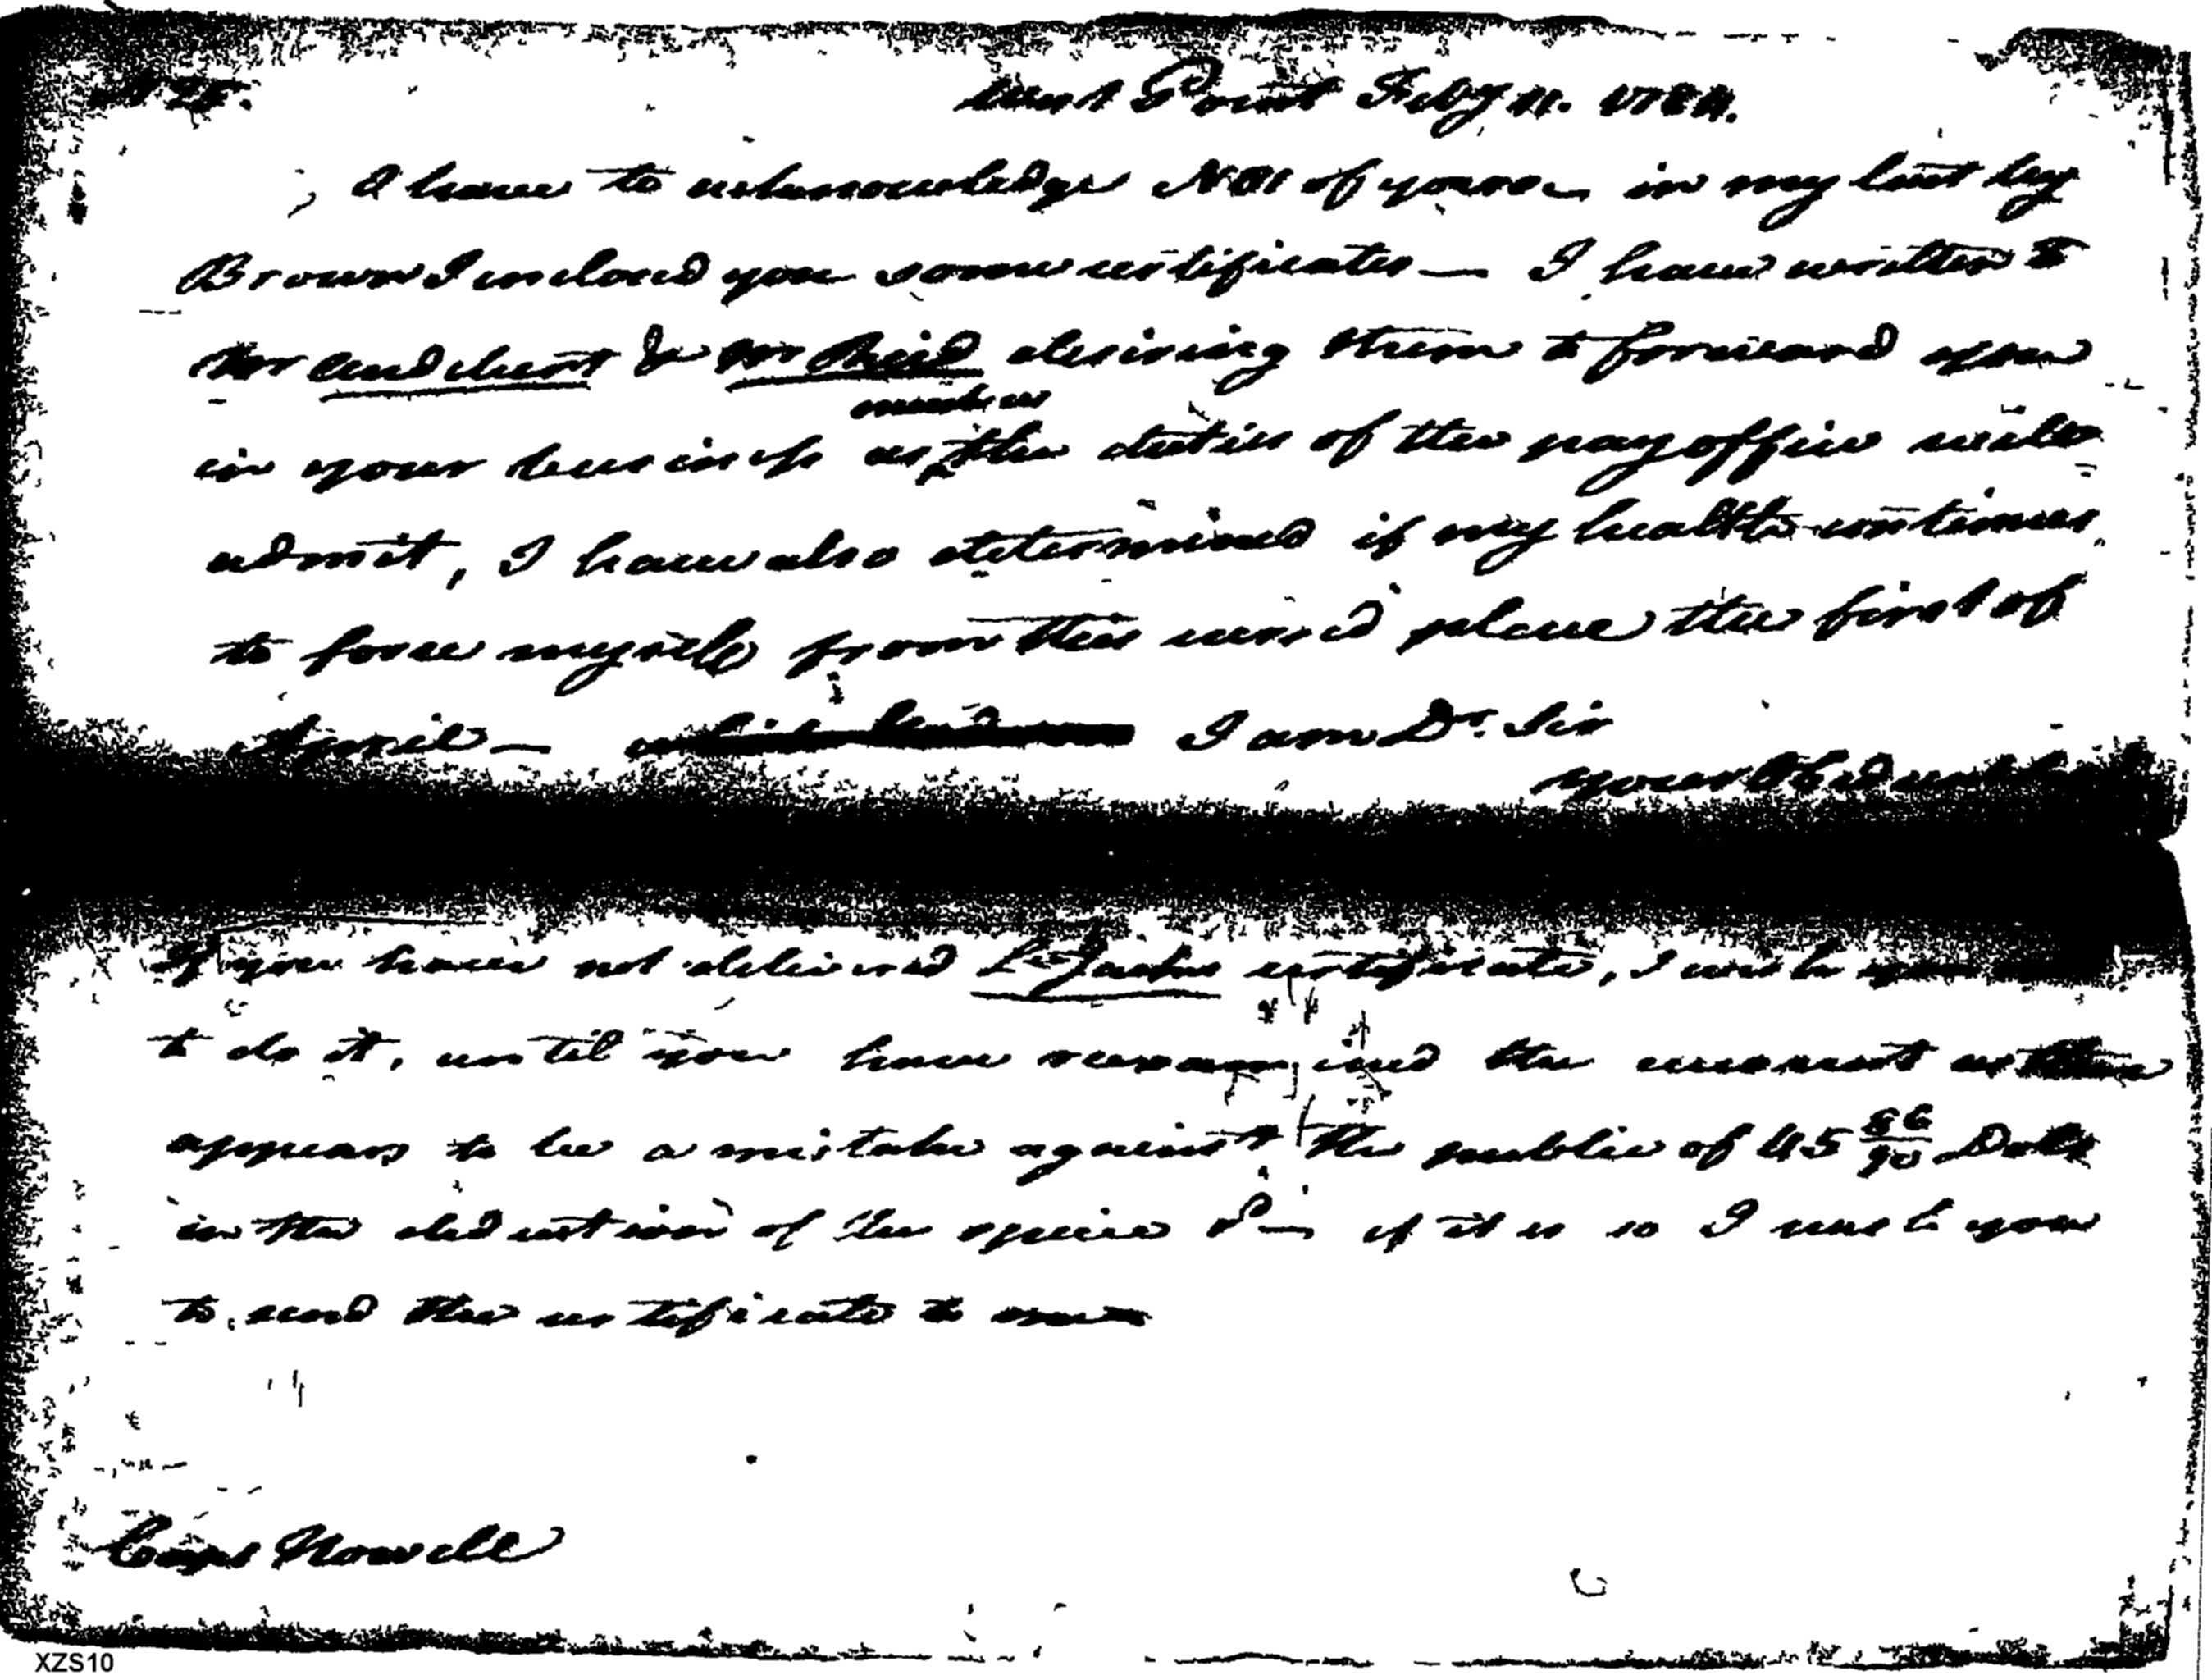 West Point Feby 11. 1784.
I have to acknowledge of yours in my last by
Brown I inclosed you some certificates — I have written to
Mr Audibert & Mr Reid desiring them to forward you
in your business as much as the duties of the pay office will
admit, I have also determined if my health continues
to force myself from this place the first of
April — I am Dr. Sir
your Obedient
If you have not delivered certificate, I wish you
to do it, until you have reexamined the account as there
appears to be a mistake against the public of 45 86/90 Dolls
in the deduction of the specie if it is so I wish you
to send the certificate to me
Capt Howell
XZS10